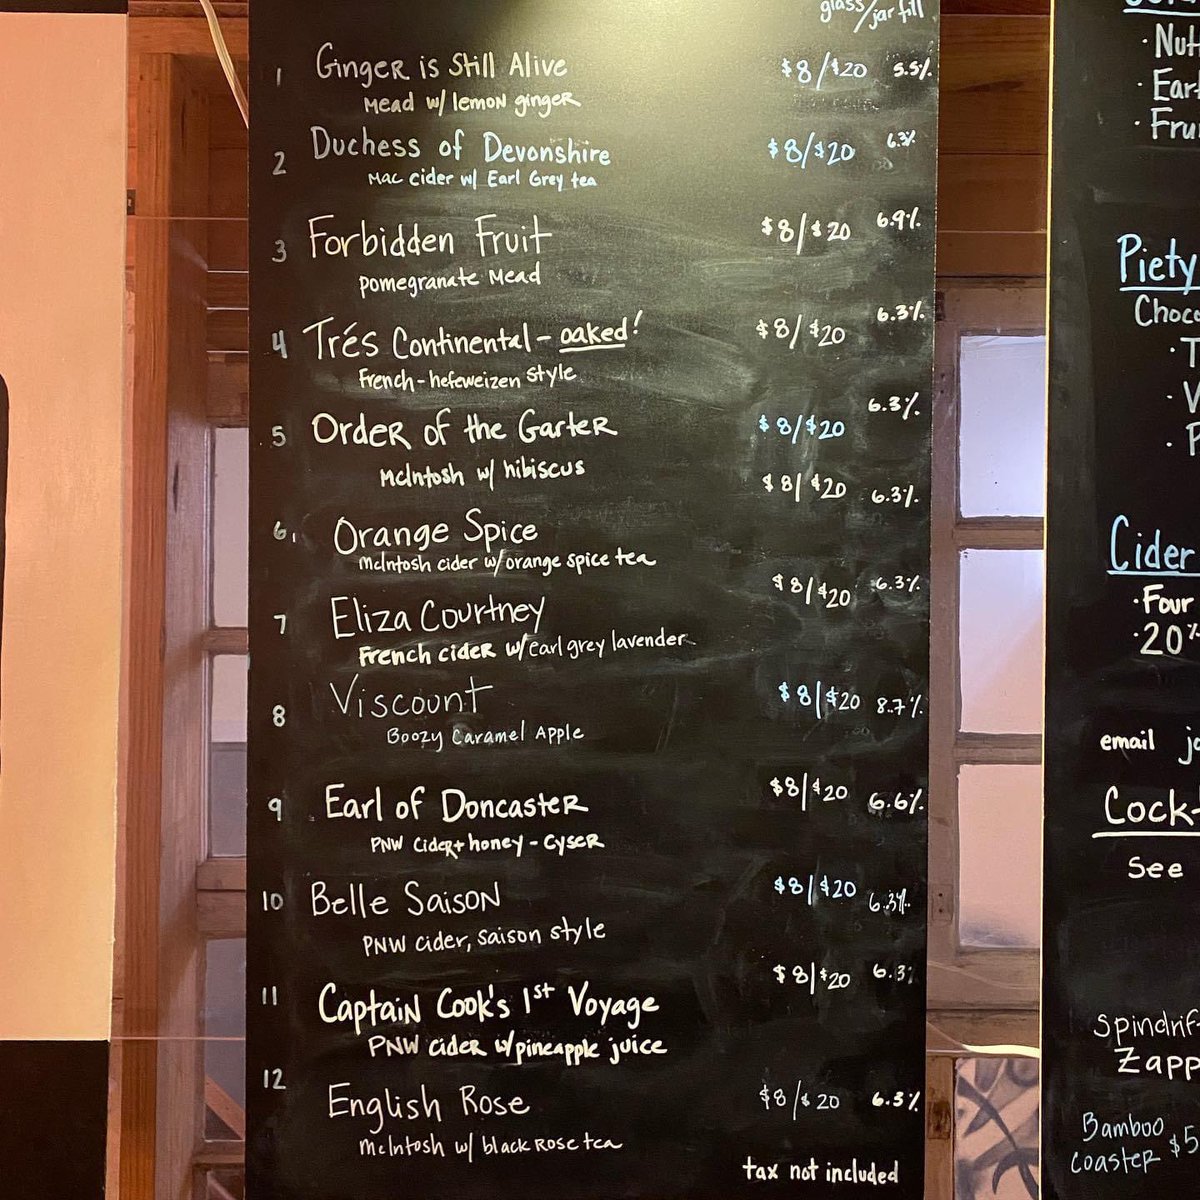 glass/jar fill
1 Ginger is Still Alive $8/$20 5.5%
Mead w/ lemon ginger
2 Duchess of Devonshire $8/$20 6.3%
Mac cider w/ Earl Grey tea
3 Forbidden Fruit $8/$20 6.9%
pomegranate Mead
4 Trés Continental - oaked! $8/$20 6.3%
French-hefeweizen style
5 Order of the Garter $8/$20 6.3%
McIntosh w/ hibiscus
6. Orange Spice $8/$20 6.3%
McIntosh cider w/ orange spice tea
7 Eliza Courtney $8/$20 6.3%
French cider w/ earl grey lavender
8 Viscount $8/$20 8.7%
Boozy Caramel Apple
9 Earl of Doncaster $8/$20 6.6%
PNW cider + honey - cyser
10 Belle Saison $8/$20 6.3%
PNW cider, saison style
11 Captain Cook's 1st Voyage $8/$20 6.3%
PNW cider w/ pineapple juice
12 English Rose $8/$20 6.3%
McIntosh w/ black rose tea
tax not included
Piety
Cider
· Four
· 20%
email
Cock-
See
Bamboo
coaster $5